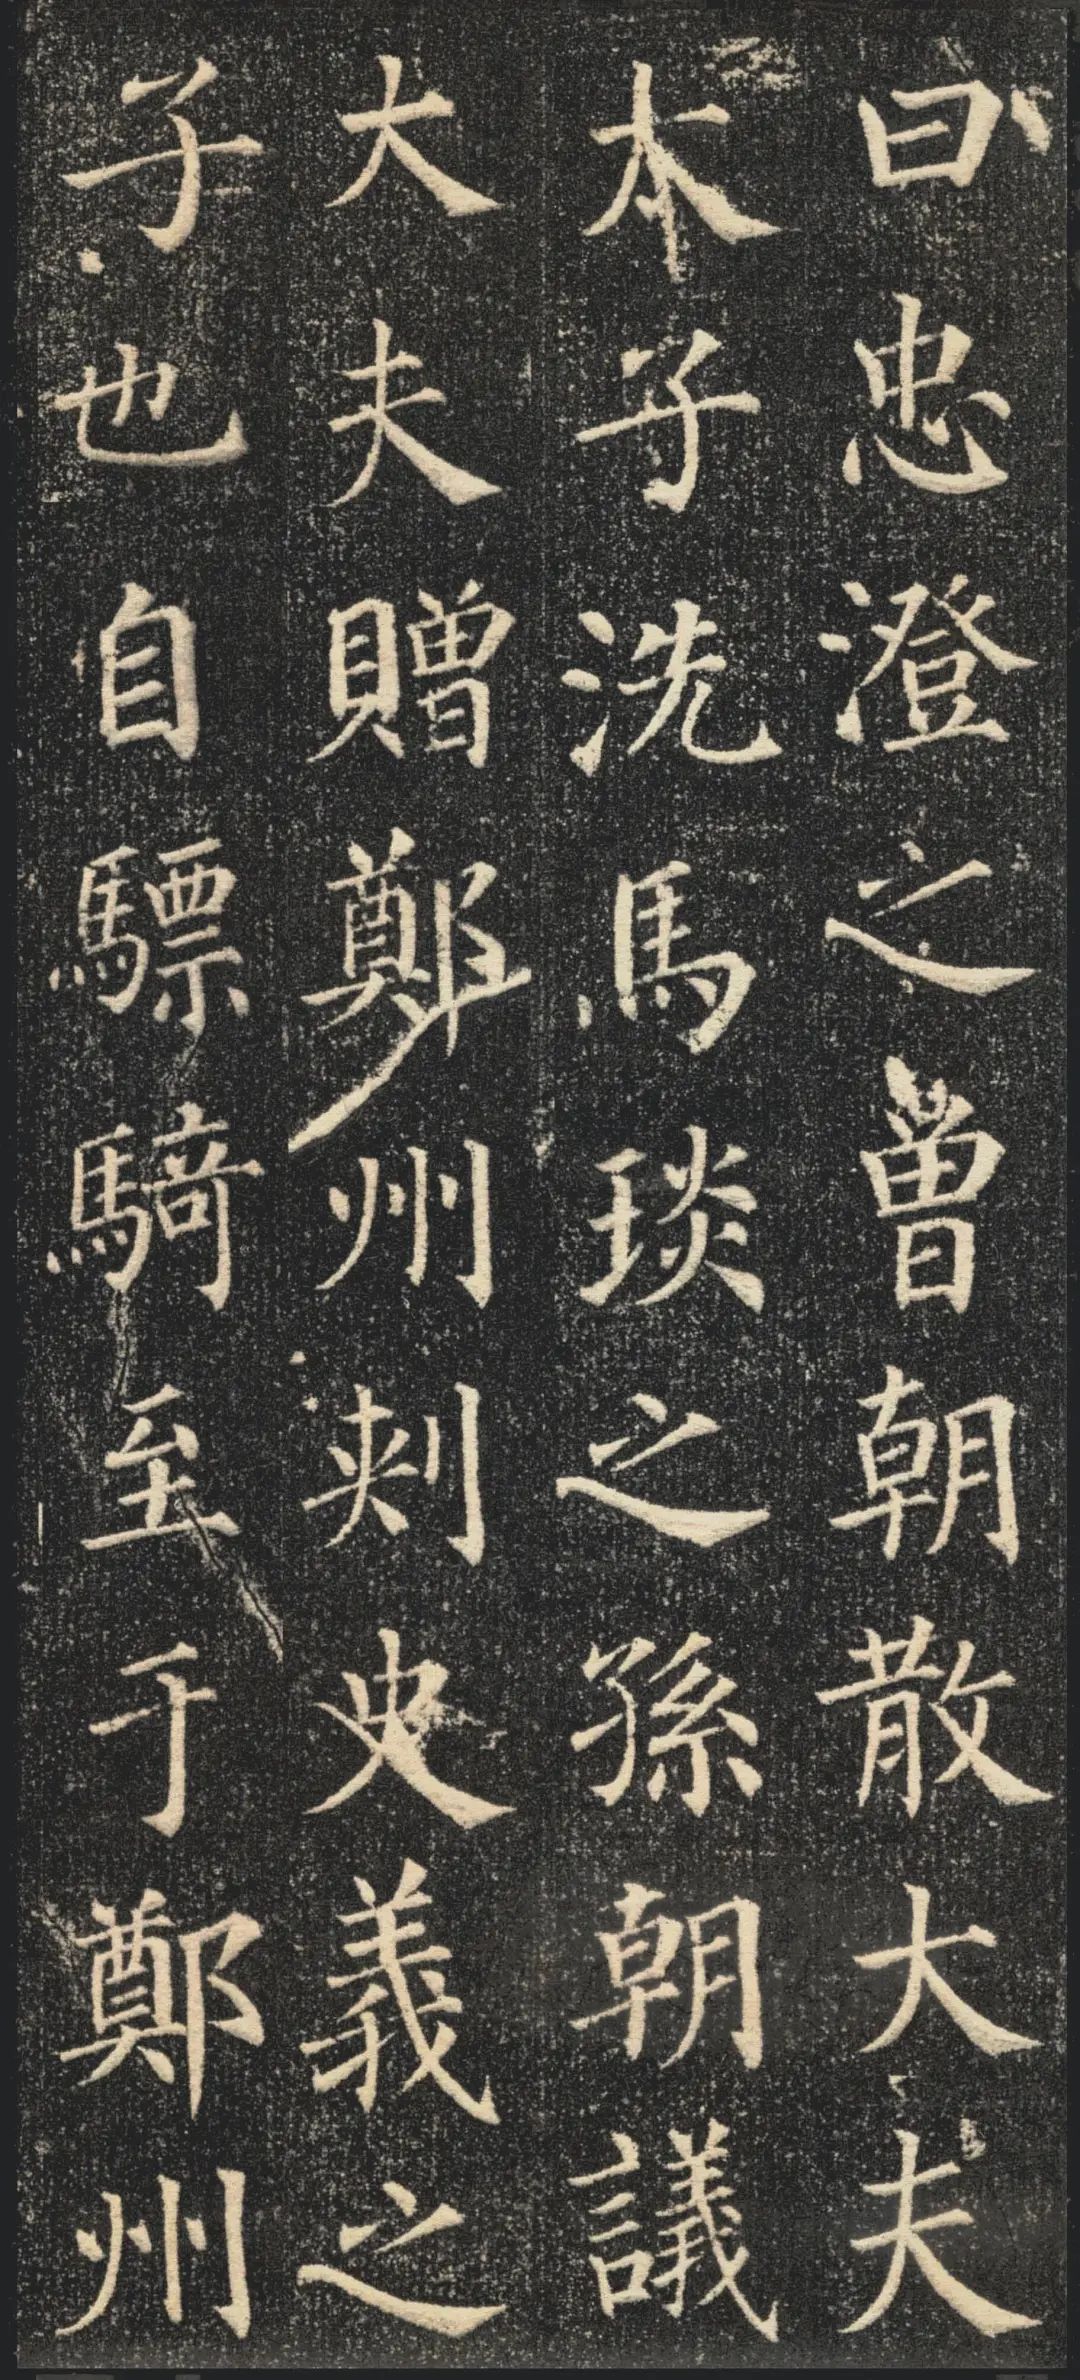 曰忠澄之曾朝散大夫
太子洗馬琰之孫朝議
大夫贈鄭州刾史義之
子也自驃騎至于鄭州